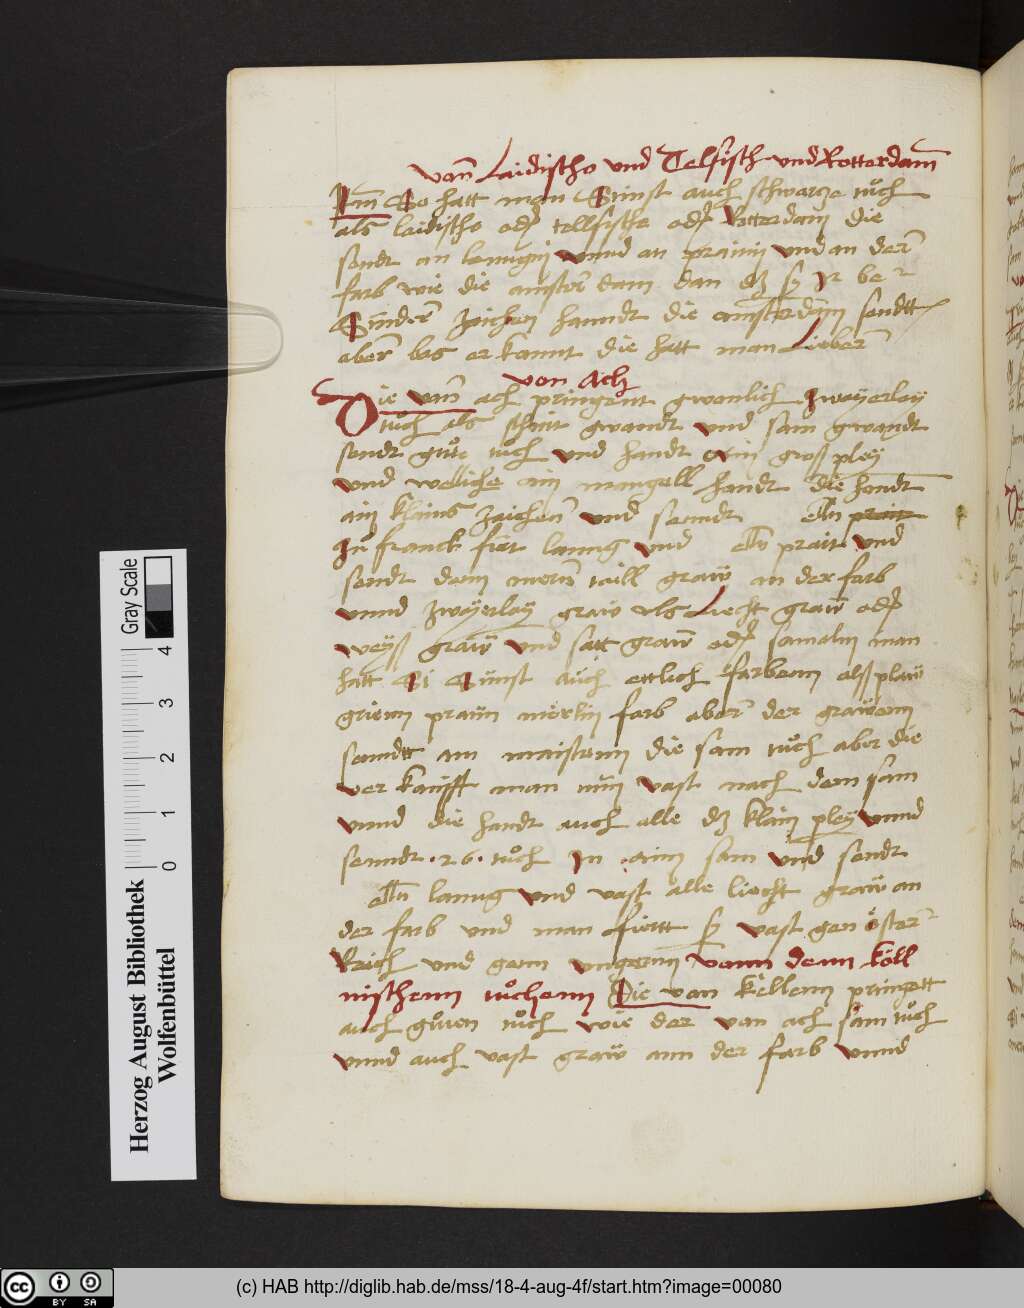 Vonn Laidischo und Telfisch und Rotterdam
Im So hatt man Sunst auch schwarcze tuͦch
als laidischo oder tellfische oder Rotterdam die
sendt an lenngin unnd an praitin und an der
farb wie die amster dam dan dz sy Ir be
Sunder Zaichen hanndt die amsterdam sendtt
aber bas er kannt die hatt man Lieber
von Ach
Die von ach pringent gwonlich Zwayerlay
tuͦch als schmit gwandt und sam gwandt
sendt guͦte tuͦch und handt ain gross pley
und weliche ain mangell handt die handt
ain klains Zaichen und senndt eln prait
In franck fiert lanng und eln prait und
sendt dem merer taill graw an der farb
unnd Zwayerlay graw als Liecht graw oder
weyss graw und satt graw oder samaln man
hatt Si Sunst auch ettlich farbenn alss plaw
grienn praun merlin farb aber der grawenn
senndtt am maistenn die sam tuͦch aber die
ver kaufft man nun vast nach dem sam
unnd die handt auch alle dz klain pley unnd
senndt .26. tuͦch In ainn sam und sendt
eln lanng und vast alle liecht graw an
der farb und man fiertt sy vast gen öster
Reich und genn ungernn vonn denn köll
nischenn tuͦchenn Die von kellenn pringett
auch guͦten tuͦch wie der von ach sam tuͦch
unnd auch vast graw ann der farb unnd
Gray Scale
0 1 2 3 4
Herzog August Bibliothek
Wolfenbüttel
cc BY SA
(c) HAB http://diglib.hab.de/mss/18-4-aug-4f/start.htm?image=00080